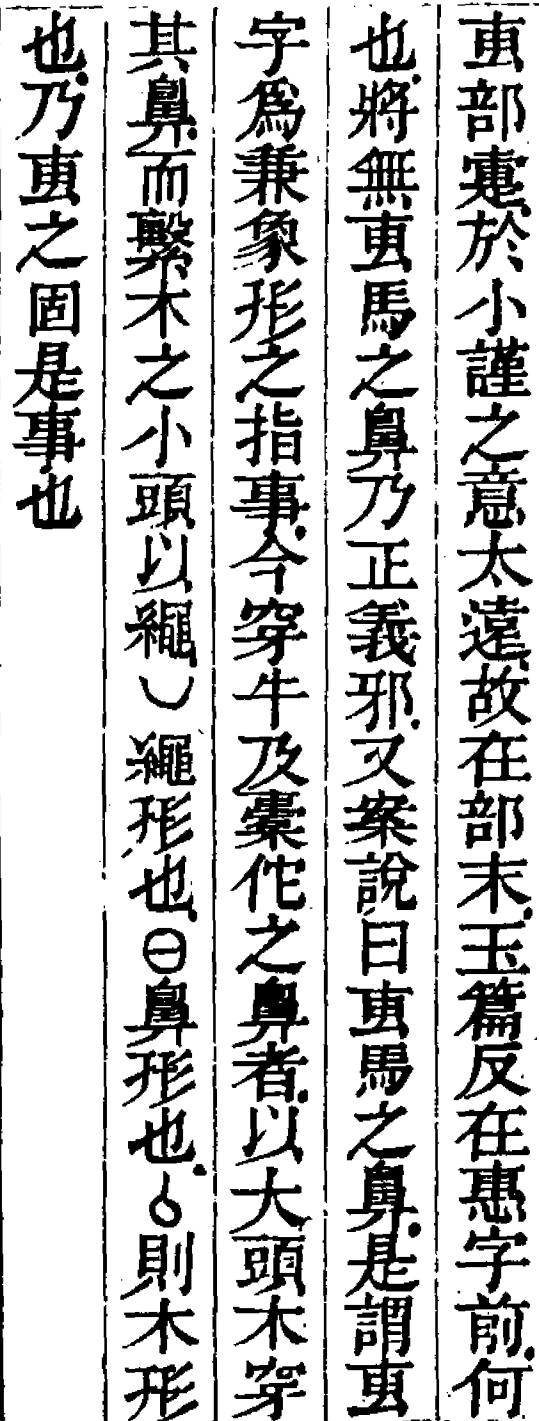 叀部疐於小謹之意太遠故在部末玉篇反在惠字前何
也將無叀馬之鼻乃正義邪又案說曰叀馬之鼻是謂叀
字爲兼象形之指事今穿牛及橐佗之鼻者以大頭木穿
其鼻而繫木之小頭以繩◡繩形也⊖鼻形也則木形
也乃叀之固是事也